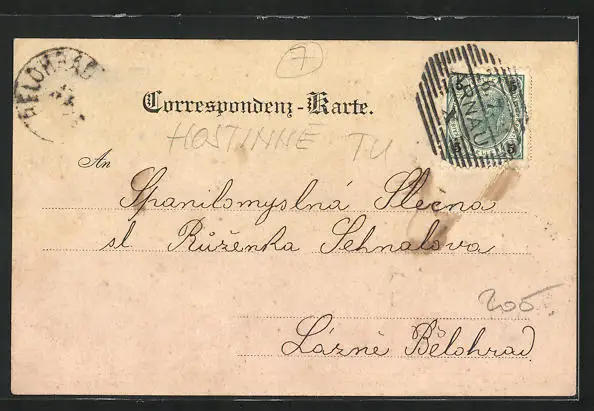 7
BĚLOHRAD
5 5
ARNAU
5 5
Correspondenz-Karte.
HOSTINNÉ TU
An
Spanilomyslná Slečna
sl. Růženka Sehnalova
205
Lázně Bělohrad